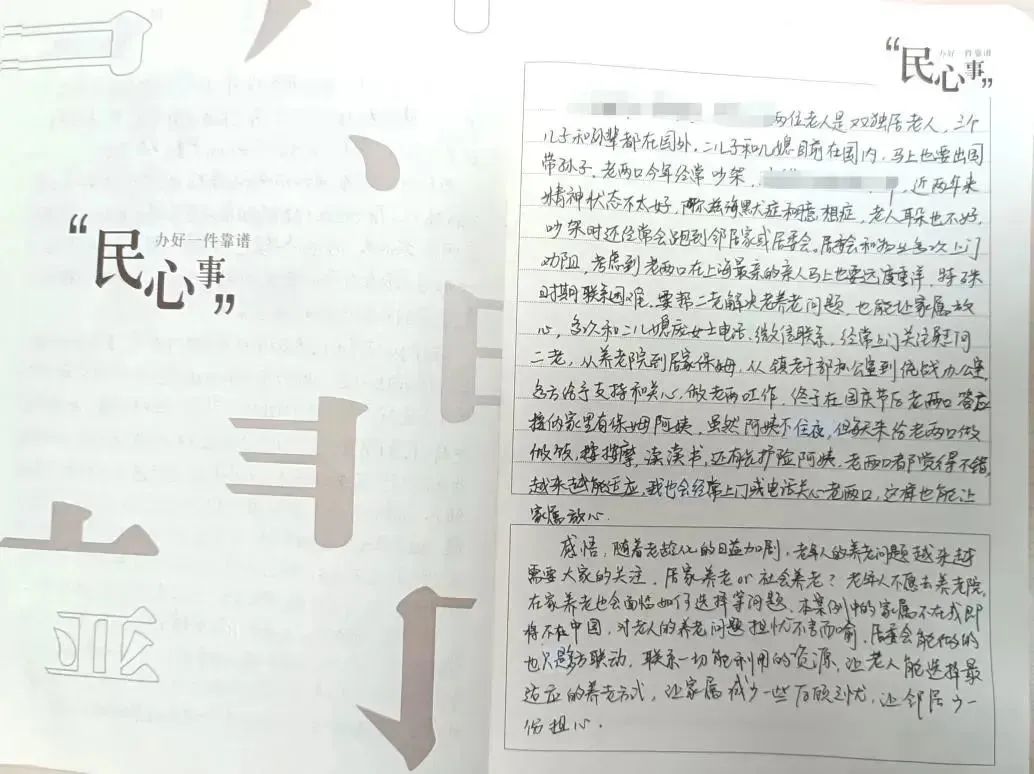 “民心事”
办好一件靠谱
“民心事”
办好一件靠谱
两位老人是双独居老人，三个
儿子和孙辈都在国外，二儿子和儿媳目前在国内，马上也要出国
带孙子。老两口今年经常吵架，近两年来
精神状态不太好，阿尔兹海默症和臆想症，老人耳朵也不好，
吵架时还经常会跑到邻居家或居委会。居委会和物业多次上门
劝阻，考虑到老两口在上海最亲的亲人马上也要远渡重洋，特殊
时期联系困难，要帮二老解决老养老问题，也能让家属放
心，多次和二儿媳庞女士电话、微信联系，经常上门关注慰问
二老，从养老院到居家保姆，从镇老干部办公室到统战办公室，
多方给予支持和关心，做老两口工作，终于在国庆节后老两口答应
接纳家里有保姆阿姨，虽然阿姨不住夜，但每天来给老两口做
做饭，按摩，读读书，还有长护险阿姨，老两口都觉得不错，
越来越能适应，我也会经常上门或电话关心老两口，这样也能让
家属放心。
感悟，随着老龄化的日益加剧，老年人的养老问题越来越
需要大家的关注，居家养老or社会养老？老年人不愿去养老院，
在家养老也会面临如何选择等问题，本案例中的家属不在或即
将不在中国，对老人的养老问题担忧不言而喻，居委会能做的
也只是多方联动，联系一切能利用的资源，让老人能选择最
适应的养老方式，让家属减少一些后顾之忧，让邻居少一
份担心。